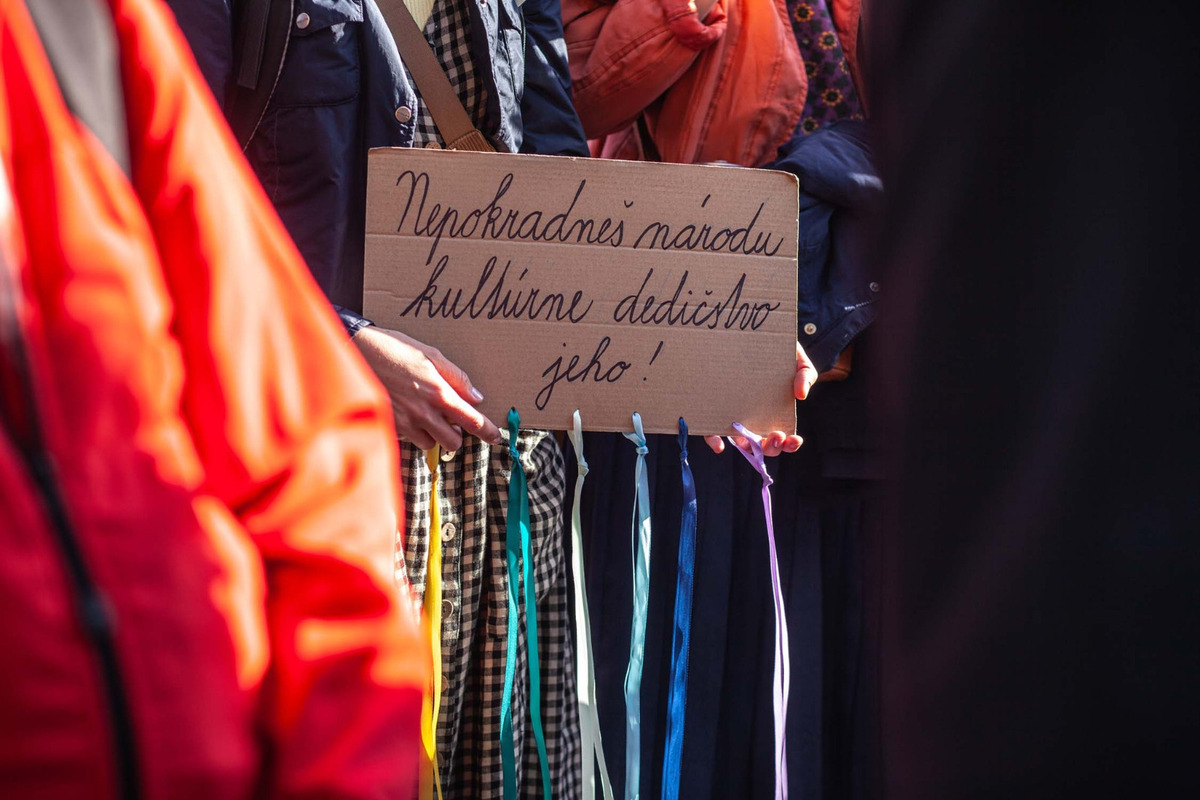 Nepokradneš národu
kultúrne dedičstvo
jeho!